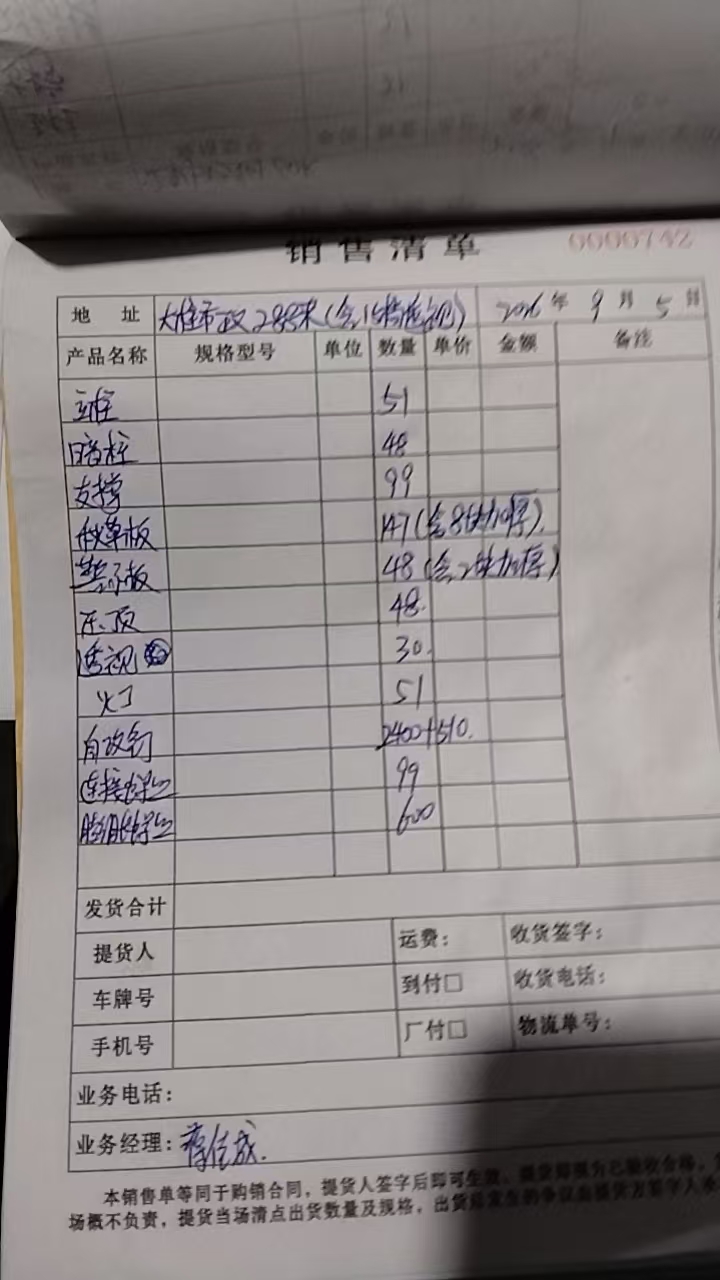 销售清单 0000742
地 址 大柱市政288米(含 2026年9月5日
产品名称 规格型号 单位 数量 单价 金额 备注
立柱 51
暗柱 48
支撑 99
秋草板 147(含8块加厚).
警示板 48(含2块加厚)
压顶 48.
透视 30.
火丁 51
自攻钉 2400+510.
连接螺丝 99
膨胀螺丝 600
发货合计
提货人 运费: 收货签字:
车牌号 到付□ 收货电话:
手机号 厂付□ 物流单号:
业务电话:
业务经理: 蒋佳成.
本销售单等同于购销合同，提货人签字后即可生效，提货即视为已验收合格，
场概不负责，提货当场清点出货数量及规格，出货后发生的争议由提货方签字人承